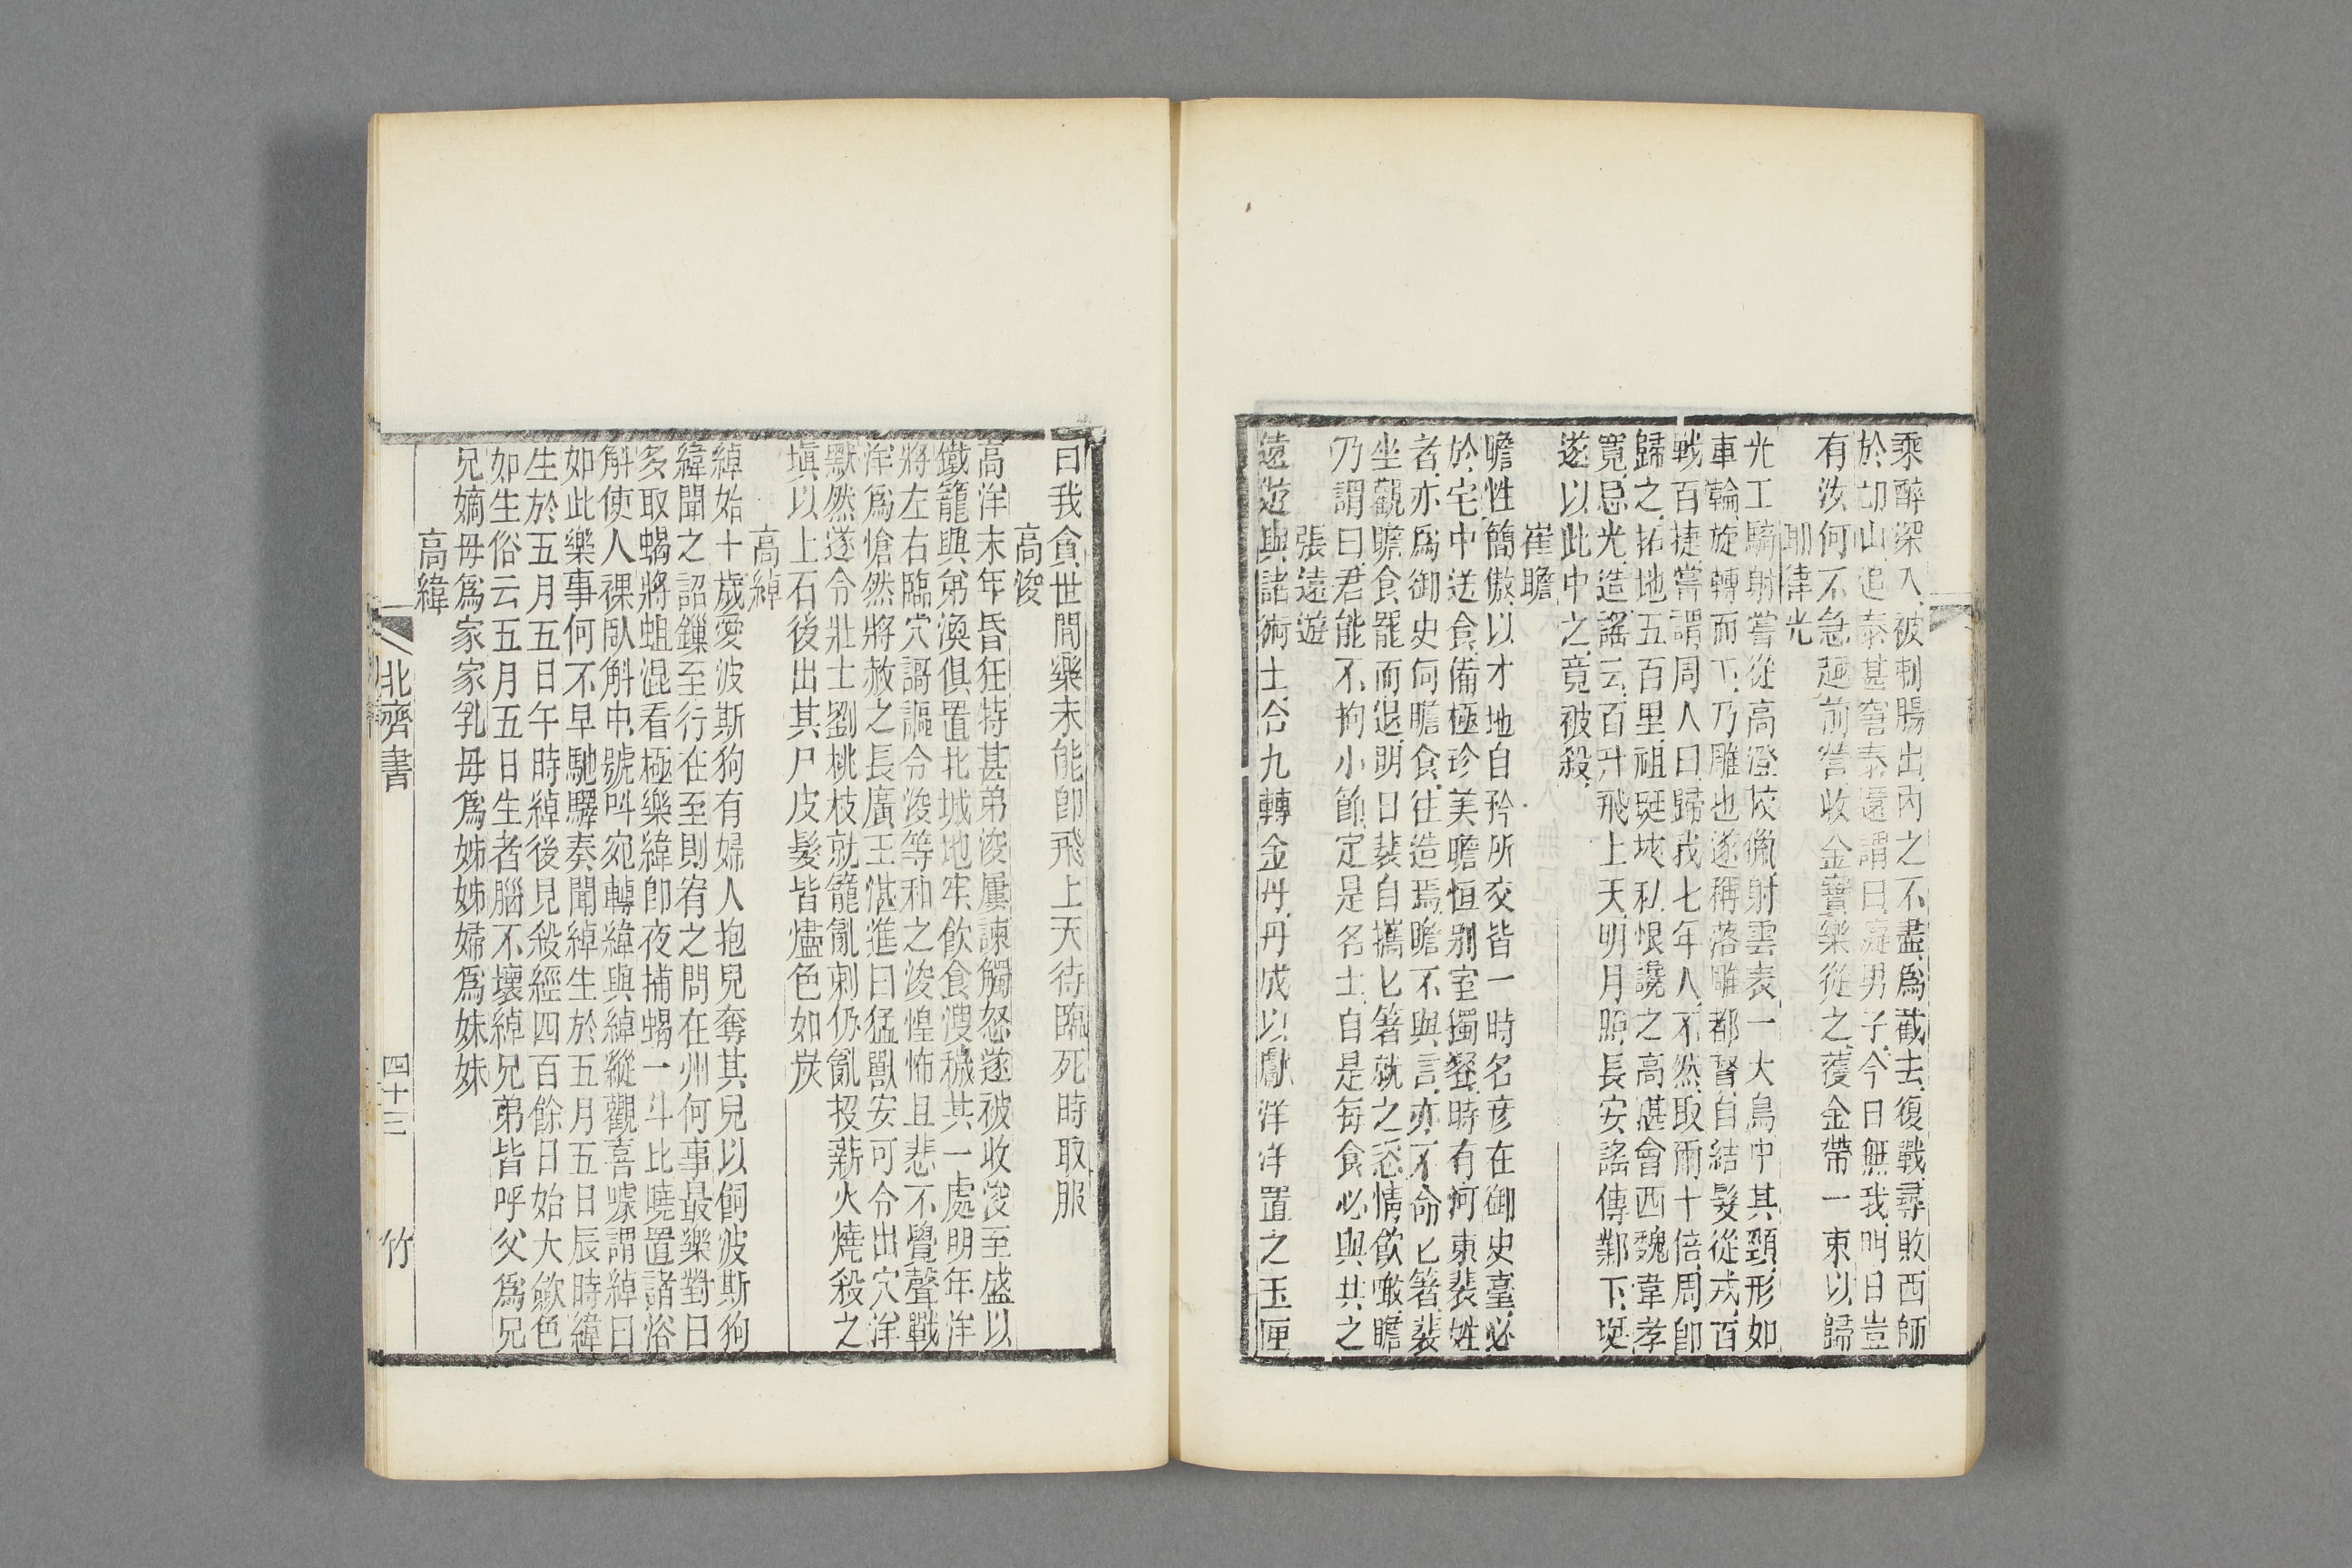 乘醉深入被刺腸出內之不盡爲截去復戰尋敗西師
於邙山追泰甚窘泰還謂曰癡男子今日無我明日豈
有汝何不急還前營收金寶樂從之獲金帶一束以歸
斛律光
光工騎射嘗從高澄校獵射雲表一大鳥中其頸形如
車輪旋轉而下乃雕也遂稱落雕都督自結髮從戎百
戰百捷嘗謂周人曰歸我七年人不然取爾十倍周卽
歸之拓地五百里祖珽挾私恨讒之高湛會西魏韋孝
寬忌光造謠云百升飛上天明月照長安謠傳鄴下珽
遂以此中之竟被殺
崔瞻
瞻性簡傲以才地自矜所交皆一時名彥在御史臺必
於宅中送食備極珍美瞻恒別室獨餐時有河東裴姓
者亦爲御史伺瞻食往造焉瞻不與言亦不命匕箸裴
坐觀瞻食罷而退明日裴自攜匕箸就之恣情飲噉瞻
乃謂曰君能不拘小節定是名士自是每食必與共之
張遠遊
遠遊與諸術士合九轉金丹丹成以獻洋洋置之玉匣
曰我貪世間樂未能卽飛上天待臨死時取服
高浚
高洋末年昏狂特甚弟浚屢諫觸怒遂被收浚至盛以
鐵籠與弟渙俱置北城地牢飲食溲穢共一處明年洋
將左右臨穴謌謳令浚等和之浚惶怖且悲不覺聲戰
洋爲愴然將赦之長廣王湛進曰猛獸安可令出穴洋
默然遂令壯士劉桃枝就籠亂刺仍亂投薪火燒殺之
塡以上石後出其尸皮髮皆燼色如炭
高綽
綽始十歲愛波斯狗有婦人抱兒奪其兒以飼波斯狗
緯聞之詔鏁至行在至則宥之問在州何事最樂對曰
多取蝎將蛆混看極樂緯卽夜捕蝎一斗比曉置諸浴
斛使人裸臥斛中號呌宛轉緯與綽縱觀喜噱謂綽曰
如此樂事何不早馳驛奏聞綽生於五月五日辰時緯
生於五月五日午時綽後見殺經四百餘日始大斂色
如生俗云五月五日生者腦不壞綽兄弟皆呼父爲兄
兄嫡母爲家家乳母爲姊姊婦爲妹妹
高緯
北齊書
四十三
竹